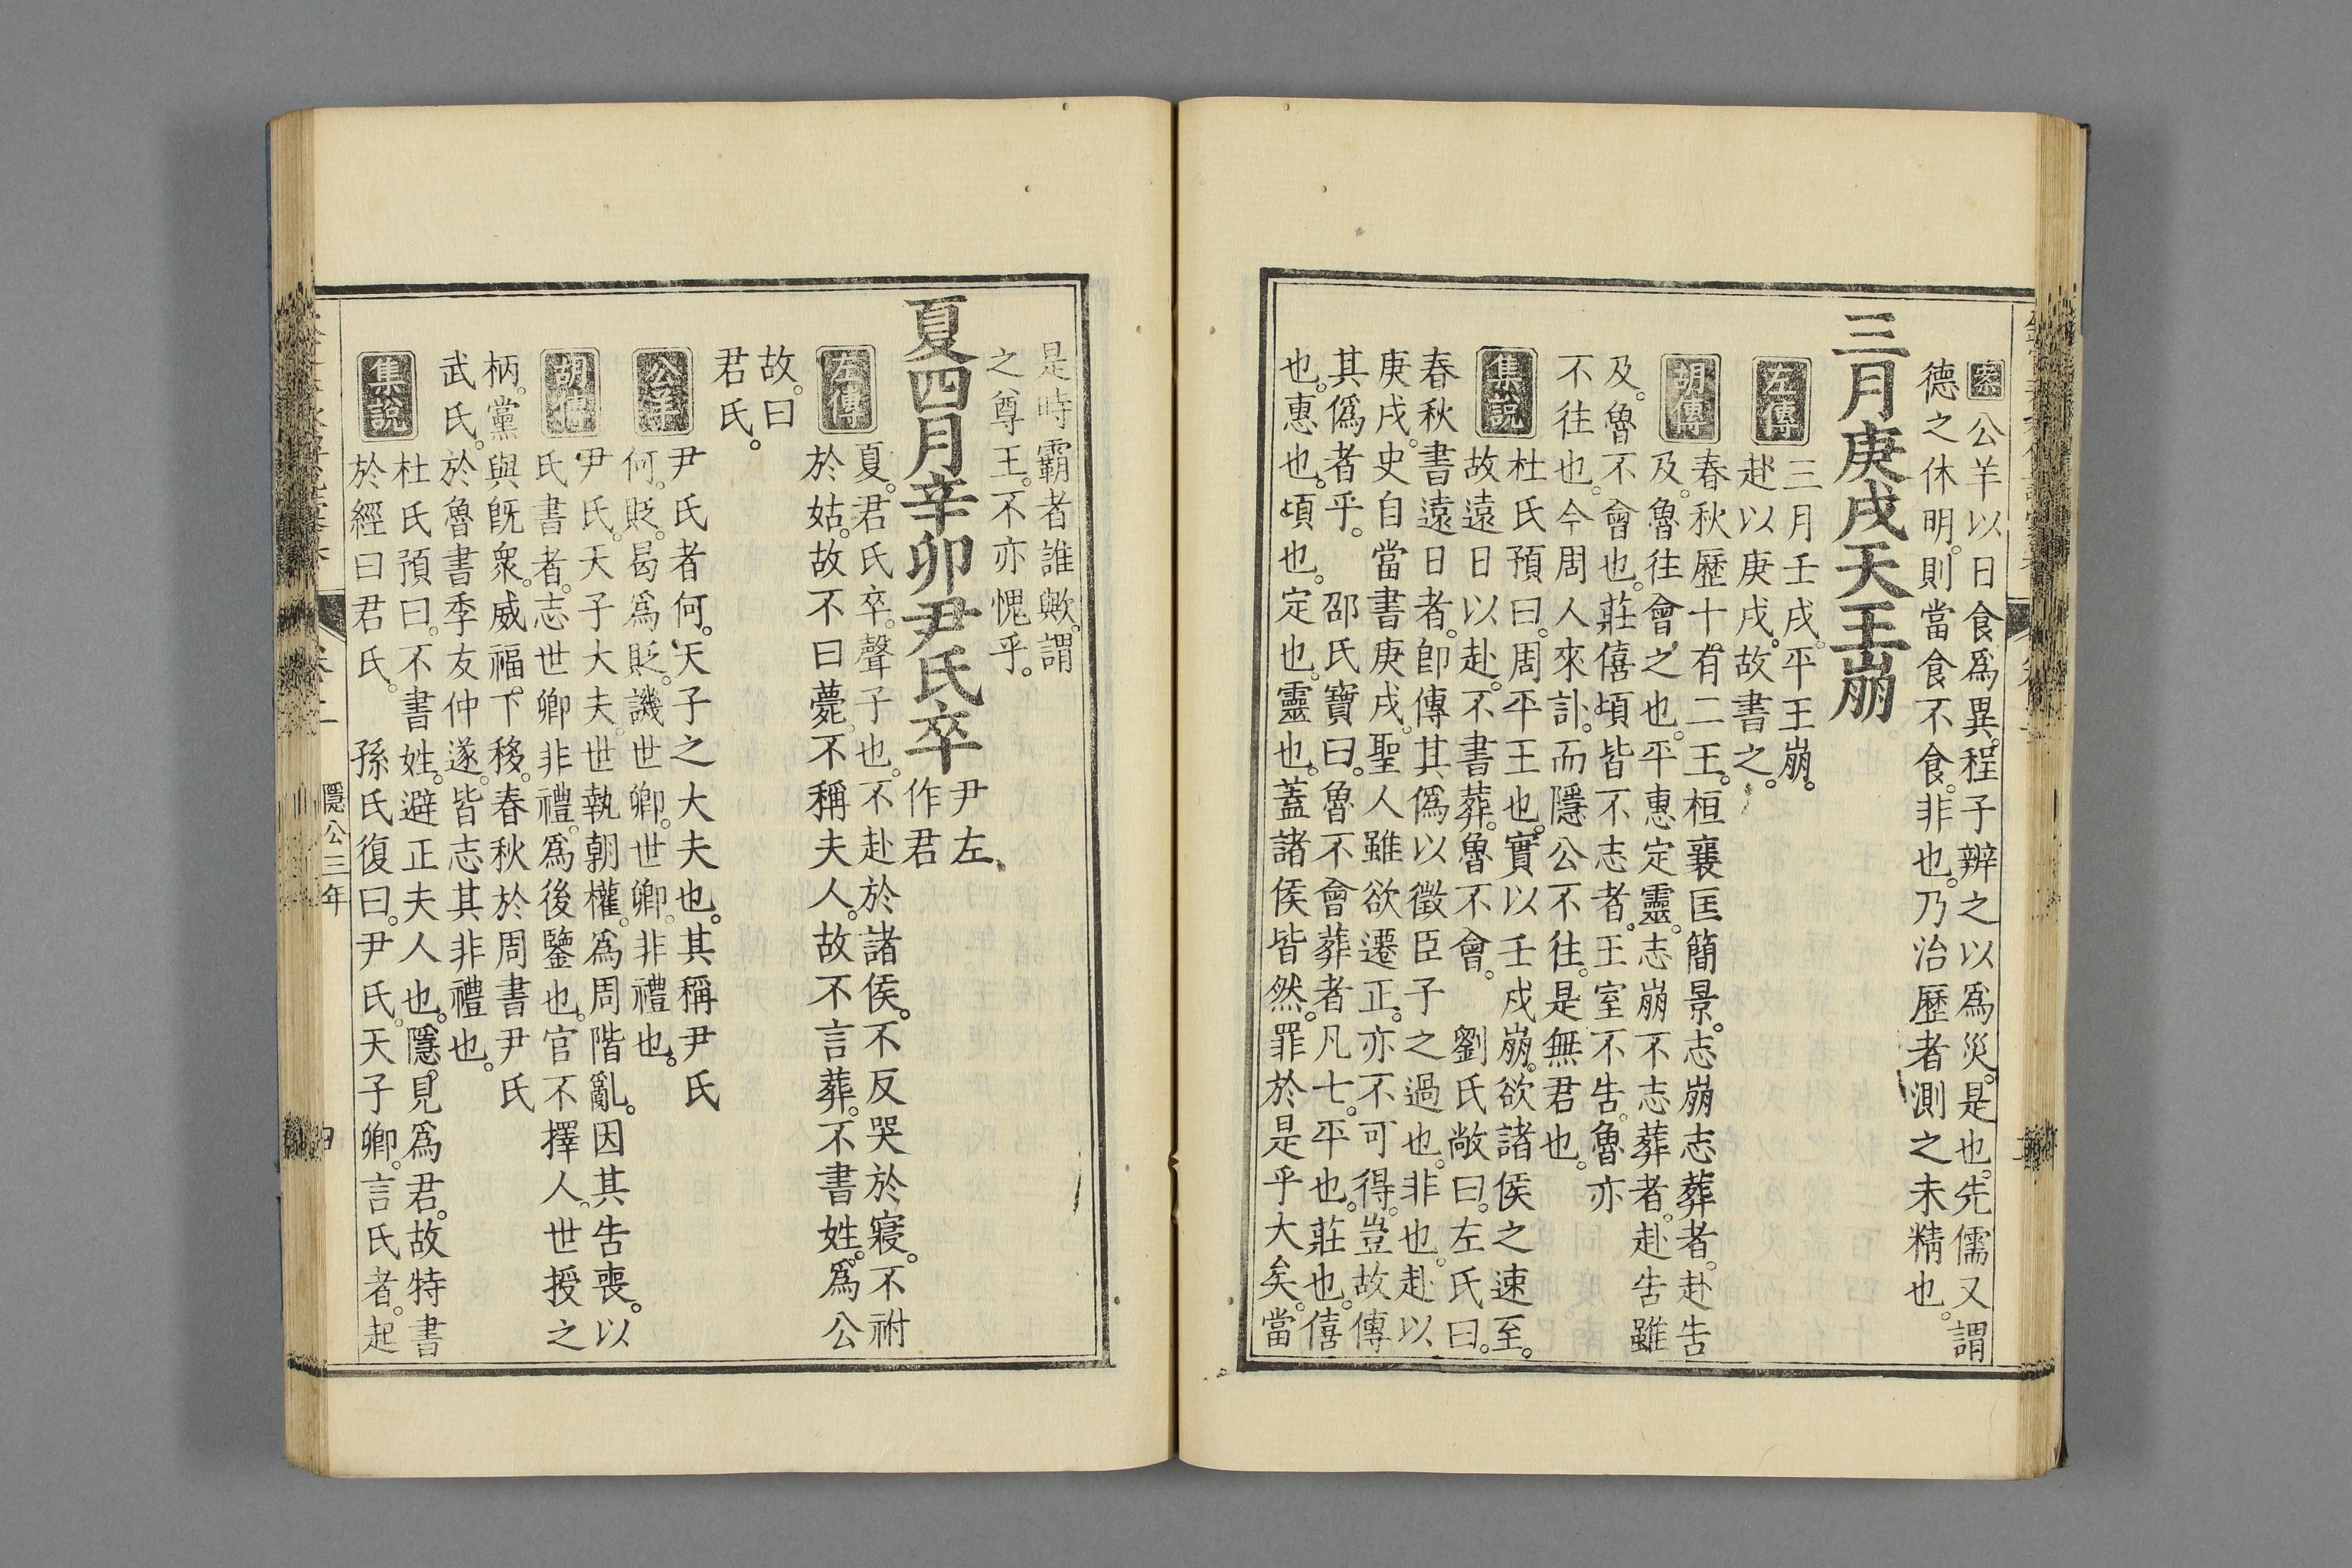 案公羊以日食爲異。程子辨之以爲災。是也。先儒又謂
德之休明。則當食不食。非也。乃治歷者測之未精也。
三月庚戌天王崩
左傳三月壬戌。平王崩。
赴以庚戌。故書之。
胡傳春秋歷十有二王。桓襄匡簡景。志崩志葬者。赴告
及。魯往會之也。平惠定靈。志崩不志葬者。赴告雖
及。魯不會也。莊僖頃皆不志者。王室不告。魯亦
不往也。今周人來訃。而隱公不往。是無君也。
集說杜氏預曰。周平王也。實以壬戌崩。欲諸侯之速至。
故遠日以赴。不書葬。魯不會。 劉氏敞曰。左氏曰。
春秋書遠日者。卽傳其僞以徵臣子之過也。非也。赴以
庚戌。史自當書庚戌。聖人雖欲遷正。亦不可得。豈故傳
其僞者乎。邵氏寶曰。魯不會葬者凡七。平也。莊也。僖
也。惠也。頃也。定也。靈也。蓋諸侯皆然。罪於是乎大矣。當
是時霸者誰歟。謂
之尊王。不亦愧乎。
夏四月辛卯尹氏卒
尹左
作君
左傳夏。君氏卒。聲子也。不赴於諸侯。不反哭於寢。不祔
於姑。故不曰薨。不稱夫人。故不言葬。不書姓。爲公
故。曰
君氏。
公羊尹氏者何。天子之大夫也。其稱尹氏
何。貶。曷爲貶。譏世卿。世卿。非禮也。
胡傳尹氏。天子大夫。世執朝權。爲周階亂。因其告喪。以
氏書者。志世卿非禮。爲後鑒也。官不擇人。世授之
柄。黨與旣衆。威福下移。春秋於周書尹氏
武氏。於魯書季友仲遂。皆志其非禮也。
集說杜氏預曰。不書姓。避正夫人也。隱見爲君。故特書
於經曰君氏。 孫氏復曰。尹氏。天子卿。言氏者。起
卷二
隱公三年